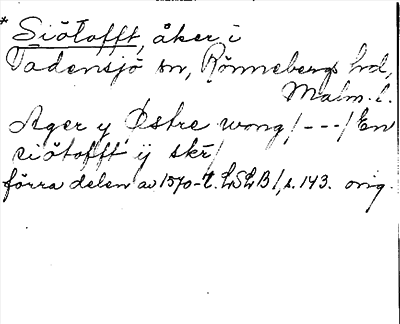 * Siötofft, åker i
Vadensjö sn, Rönnebergs hd,
Malm. l.
Ager y Østre wong/---/En
siötofft ij skr/
förra delen av 1570-t. LSLB1, s. 143. orig.